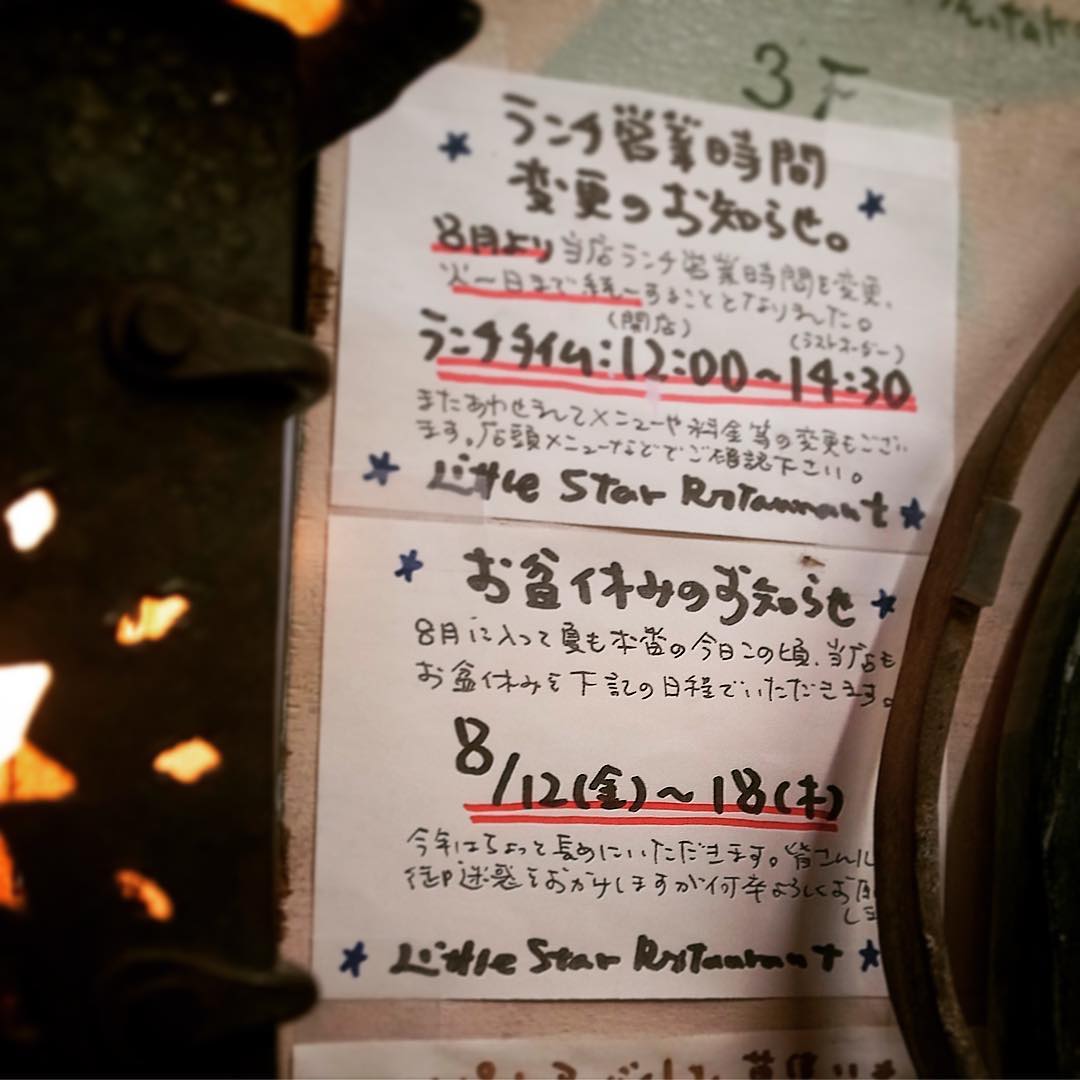 3F
ランチ営業時間
変更のお知らせ。
8月より当店ランチ営業時間を変更、
火〜日まで統一することとなりました。
(開店) (ラストオーダー)
ランチタイム:12:00〜14:30
またあわせましてメニューや料金等の変更もござい
ます。店頭メニューなどでご確認下さい。
Little Star Restaurant
お盆休みのお知らせ
8月に入って夏も本番の今日この頃、当店も
お盆休みを下記の日程でいただきます。
8/12(金)〜18(木)
今年はちょって長めにいただきます。皆さんに
御迷惑をおかけしますが何卒よろしくお願
しま
Little Star Restaurant